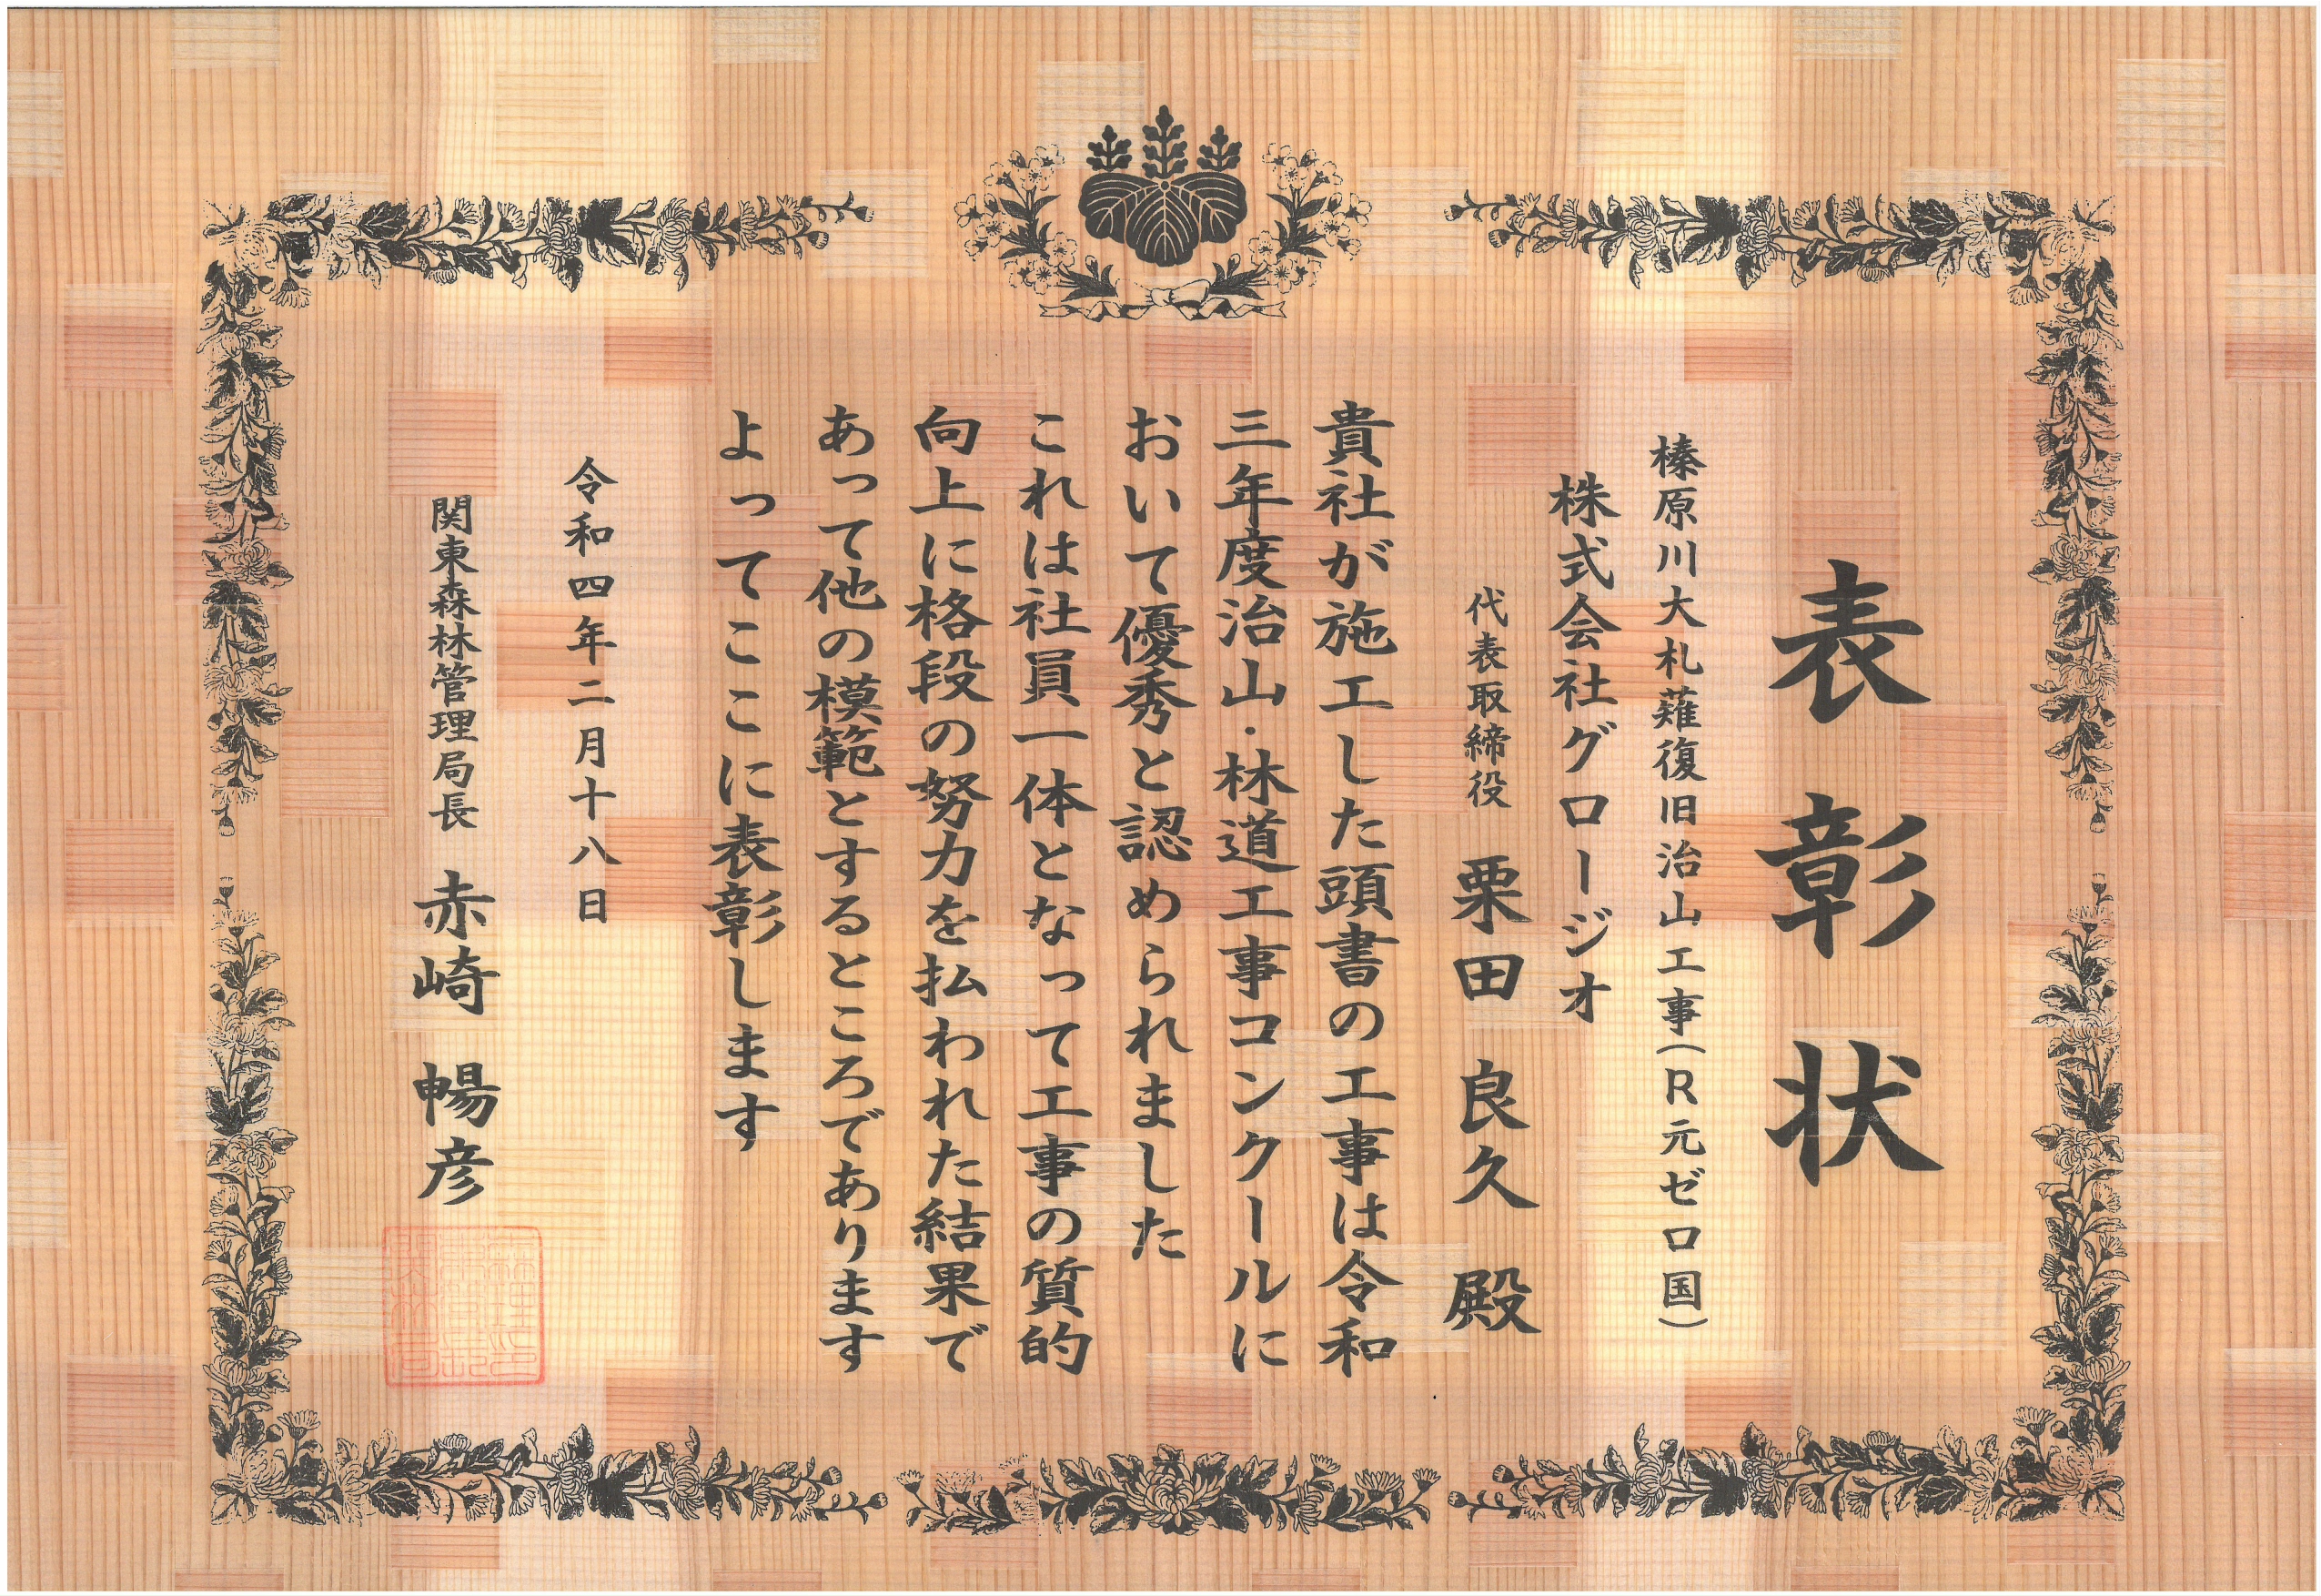 表彰状
榛原川大札薙復旧治山工事(R元ゼロ国)
株式会社グロージオ
代表取締役 栗田良久殿
貴社が施工した頭書の工事は令和
三年度治山・林道工事コンクールに
おいて優秀と認められました
これは社員一体となって工事の質的
向上に格段の努力を払われた結果で
あって他の模範とするところであります
よってここに表彰します
令和四年二月十八日
関東森林管理局長 赤崎暢彦